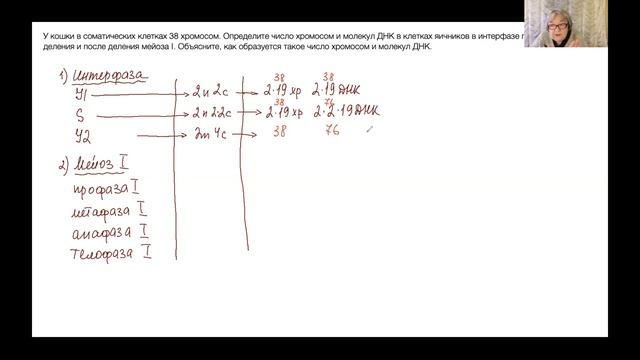 У кошки в соматических клетках 38 хромосом. Определите число хромосом и молекул ДНК в клетках яичников в интерфазе
деления и после деления мейоза I. Объясните, как образуется такое число хромосом и молекул ДНК.
1) Интерфаза
38 38
У1 2n 2c 2·19 хр 2·19 ДНК
38 76
S 2n 2·2c 2·19 хр 2·2·19 ДНК
У2 2n 4c 38 76
2) Мейоз I
профаза I
метафаза I
анафаза I
телофаза I